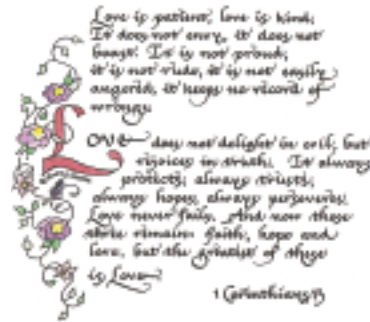 Love is patient, love is kind;
It does not envy, it does not
boast. It is not proud;
it is not rude, it is not easily
angered, it keeps no record of
wrongs.
Love does not delight in evil, but
rejoices in truth. It always
protects, always trusts,
always hopes, always perseveres.
Love never fails. And now these
three remain: faith, hope and
love, but the greatest of these
is Love
1 Corinthians 13